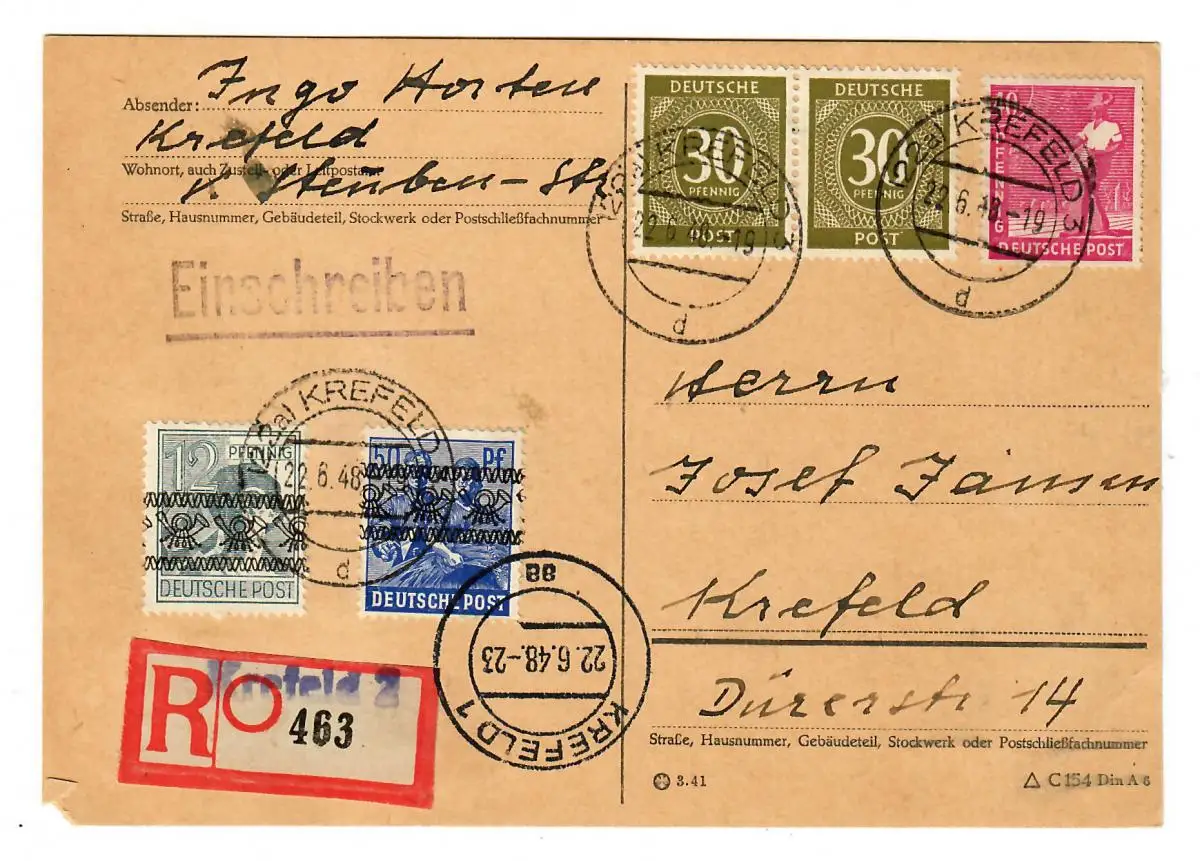 Absender: Ingo Horten
Krefeld
Wohnort, auch Zustell- oder Leitpostamt
Steuben-Str
Straße, Hausnummer, Gebäudeteil, Stockwerk oder Postschließfachnummer
Einschreiben
DEUTSCHE
30
PFENNIG
POST
DEUTSCHE
30
PFENNIG
POST
40
PFENNIG
DEUTSCHE POST
(22a) KREFELD 3
22.6.48.-19
d
(22a) KREFELD 3
22.6.48.-19
d
Herrn
Josef Jansen
Krefeld
Dürerstr 14
Straße, Hausnummer, Gebäudeteil, Stockwerk oder Postschließfachnummer
12 PFENNIG
DEUTSCHE POST
50 Pf
DEUTSCHE POST
(22a) KREFELD
22.6.48
d
aa
22.6.48.-23
KREFELD 1
R
Krefeld 2
463
3.41
C 154 Din A 6